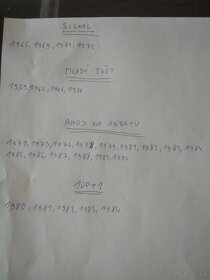 SIGNÁL
1965, 1969, 1971, 1972
MLADÝ SVĚT
1959, 1960, 1966, 1971
AHOJ NA SOBOTU
1971, 1973, 1976, 1978, 1979, 1981, 1982, 1983, 1984
1985, 1986, 1987, 1988, 1989, 1990
100+1
1980, 1981, 1982, 1983, 1984